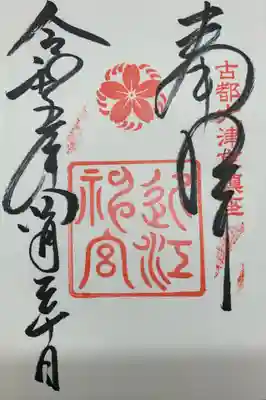 奉拝
古都大津鎮座
近江
神宮
令和五年四月三十日